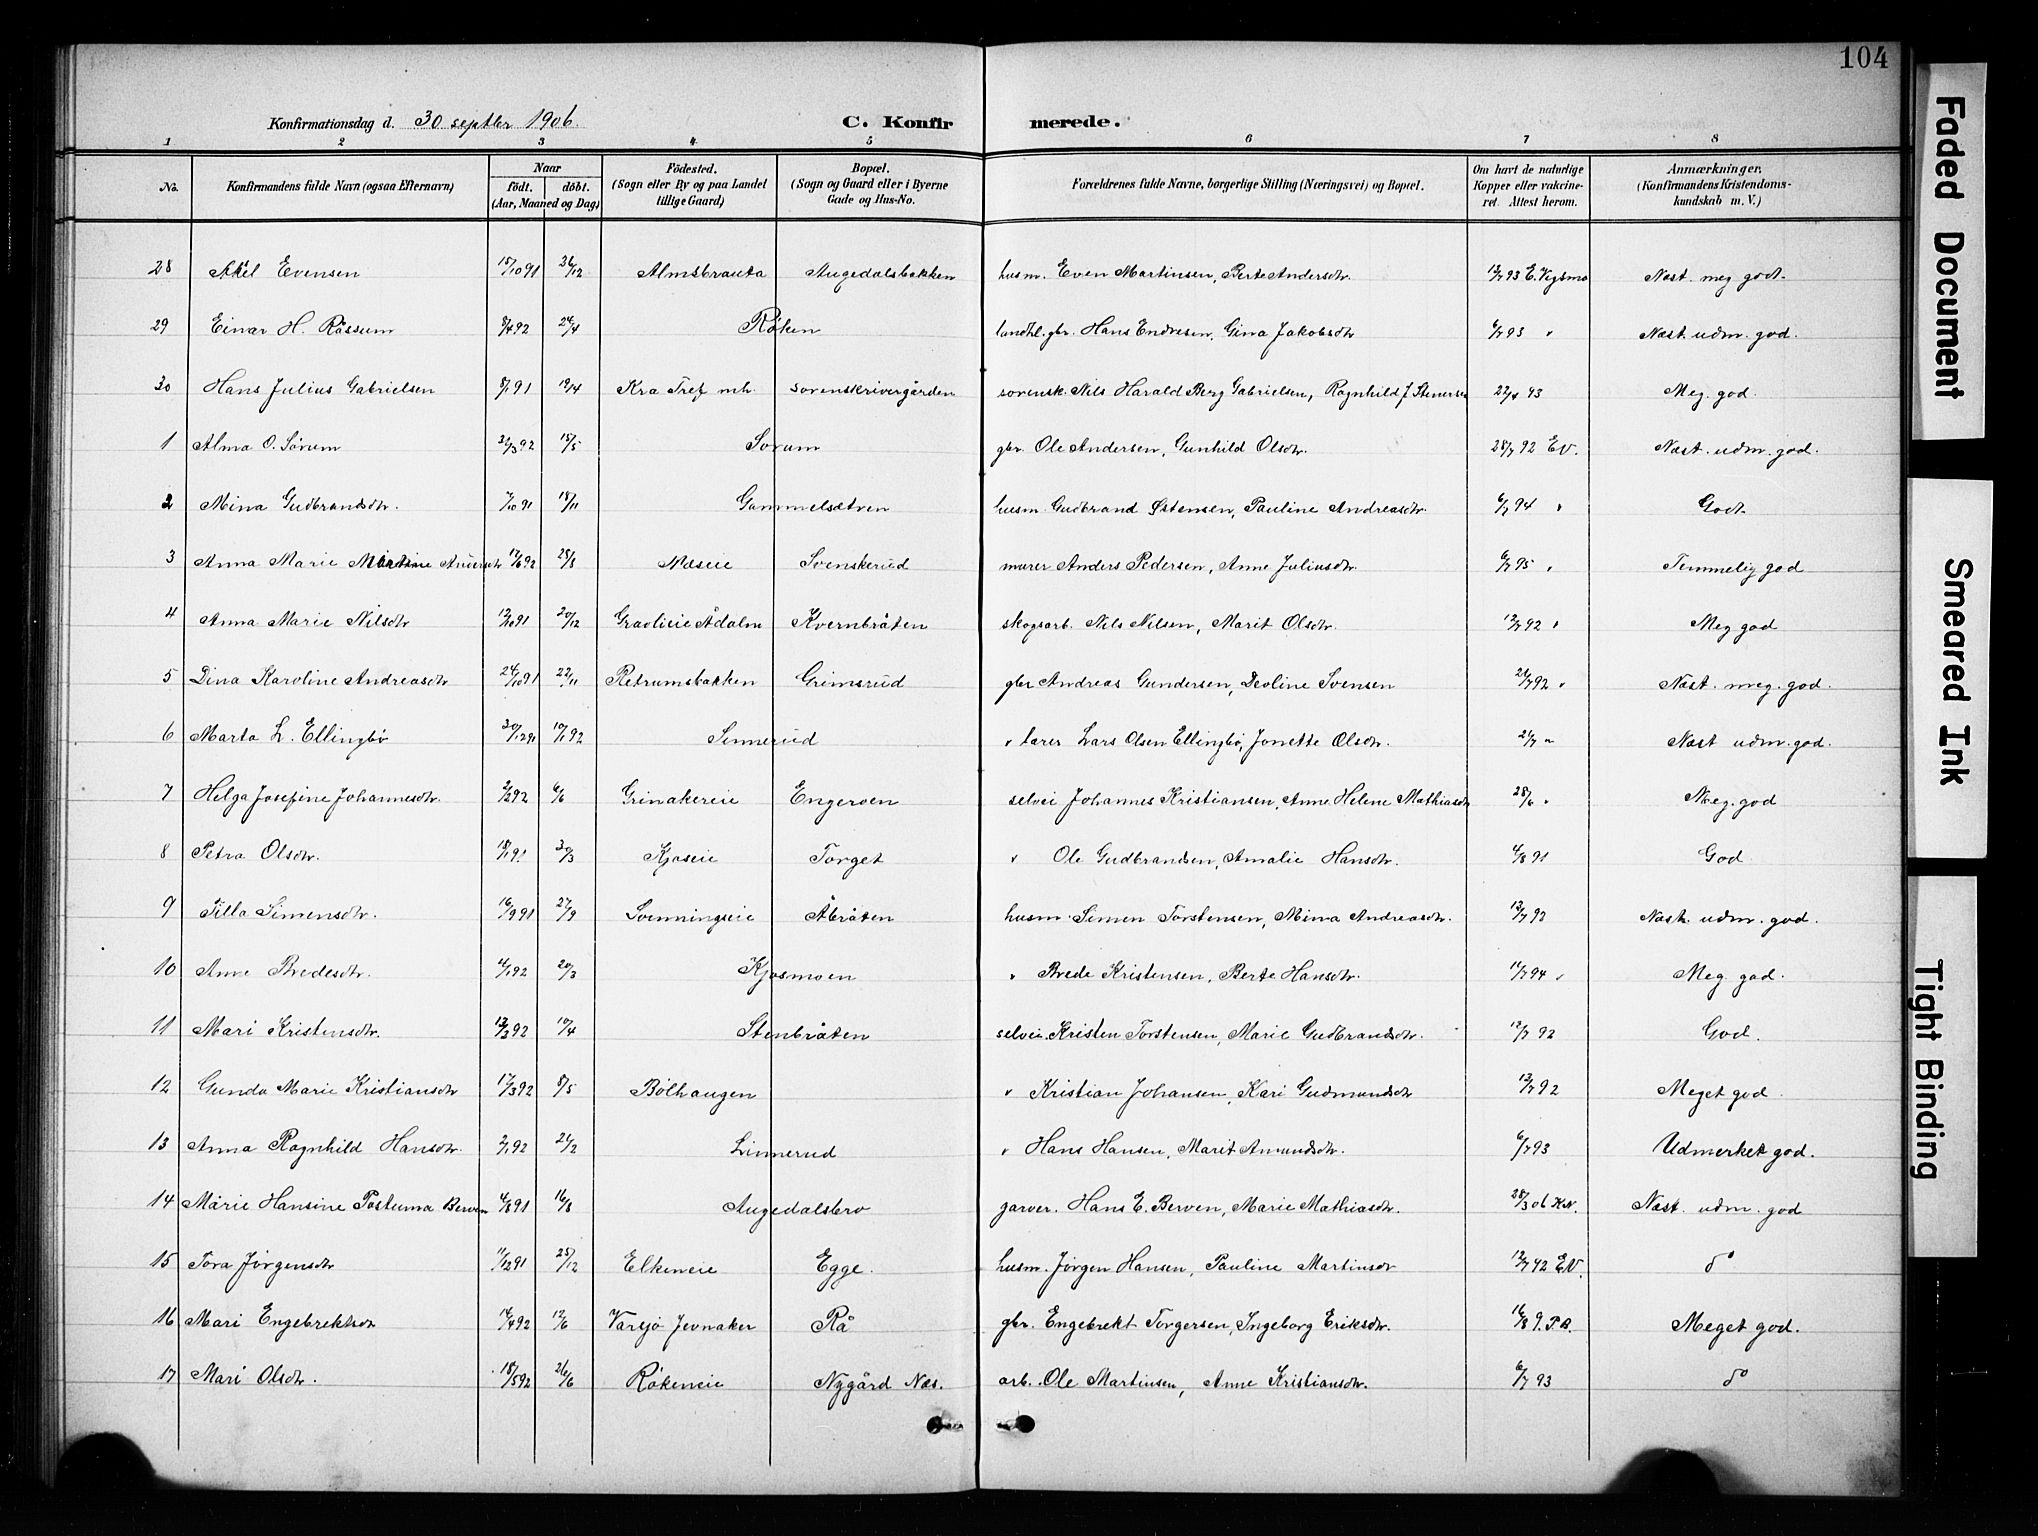 104
Konfirmationsdag d. 30 septbr 1906. C. Konfirmerede.
1 2 3 4 5 6 7 8
No. Konfirmandens fulde Navn (ogsaa Efternavn) Naar født. døbt. (Aar, Maaned og Dag) Fødested. (Sogn eller By og paa Landet tillige Gaard) Bopæl. (Sogn og Gaard eller i Byerne Gade og Hus-No. Forældrenes fulde Navne, borgerlige Stilling (Næringsvei) og Bopæl. Om havt de naturlige Kopper eller vakcineret. Attest herom. Anmærkninger. (Konfirmandens Kristendomskundskab m. V.)
28 Aksel Evensen 15/10 91 26/12 Almsbrauta Augedalsbakken husm. Even Martinsen, Berte Andersdtr. 12/7 93 E. Vegsmo Næst. meg god.
29 Einar H. Råssum 8/4 92 24/4 Røken landhl. gbr. Hans Endresen, Gina Jakobsdtr 6/7 93 " Næst. udm. god.
30 Hans Julius Gabrielsen 8/1 91 19/4 Kra Tref. mh. Sorenskrivergården sorensk. Nils Harald Berg Gabrielsen, Ragnhild J. Stenersen 22/4 93 Meg. god.
1 Alma O. Sørum 31/3 92 15/5 Sorum gbr. Ole Andersen, Gunhild Olsdtr. 28/7 92 E.V. Næst. udm. god.
2 Mina Gudbrandsdtr. 7/10 91 18/11 Gammelsætren husm. Gudbrand Østensen, Pauline Andreasdtr. 6/7 94 " Godt.
3 Anna Marie Martine Andersdtr 17/6 92 28/8 Næseie Svenskerud murer Anders Pedersen, Anne Juliusdtr. 6/7 95 " Temmelig god
4 Anna Marie Nilsdtr 12/10 91 20/12 Gravlieie Ådalen Kvernbråten skogsarb. Nils Nilsen, Marit Olsdtr. 12/7 92 " Meg god
5 Dina Karoline Andreasdtr 24/10 91 22/11 Retrumsbakken Grimsrud gbr Andreas Gundersen, Deoline Svensen 21/7 92 " Næst. meg. god.
6 Marta L. Ellingbø 30/12 91 10/1 92 Sinnerud " lærer Lars Olsen Ellingbø, Jonette Olsdtr. 21/7 " Næst udm. god.
7 Helga Josefine Johannesdtr. 2/2 92 6/6 Grinakereie Engeroen selvei Johannes Kristiansen, Anne Helene Mathiasdtr 28/6 " Meg. god
8 Petra Olsdtr. 18/1 91 30/3 Kjoseie Torget " Ole Gudbrandsen, Amalie Hansdtr. 4/8 91 God
9 Tilla Simensdtr. 16/9 91 27/9 Svenningseie Åbråten husm. Simen Torstensen, Mina Andreasdtr. 12/7 92 Næst. udm. god.
10 Anne Bredesdtr. 4/1 92 20/3 Kjosmoen " Brede Kristensen, Berte Hansdtr. 11/7 94 " Meg. god.
11 Mari Kristensdtr. 12/3 92 10/4 Stenbråten selvei. Kristen Torstensen, Marie Gudbrandsdtr. 12/7 92 God.
12 Gunda Marie Kristiansdtr 17/3 92 8/5 Bølhaugen " Kristian Johansen, Kari Gudmundsdtr 12/7 92 Meget god.
13 Anna Ragnhild Hansdtr. 2/1 92 21/2 Linnerud " Hans Hansen, Marit Amundsdtr. 6/7 93 Udmerket god.
14 Marie Hansine Postuma Berven 4/8 91 16/8 Augedalsbro garver. Hans E. Berven, Marie Mathiasdtr. 28/3 06 K.N. Næst. udm. god
15 Tora Jørgensdtr 11/12 91 25/12 Elkeneie Egge. husm. Jørgen Hansen, Pauline Martinsdtr 12/7 92 E.V. do
16 Mari Engebrektsdtr 14/4 92 12/6 Varsjø Jevnaker Rå gbr. Engebrekt Torgersen, Ingeborg Eriksdtr. 16/8 9. P.B. Meget god.
17 Mari Olsdtr. 18/5 92 26/6 Røkeneie Nygård Næs. arb. Ole Martinsen, Anne Kristiansdtr. 6/7 93 do
Faded Document
Smeared Ink
Tight Binding